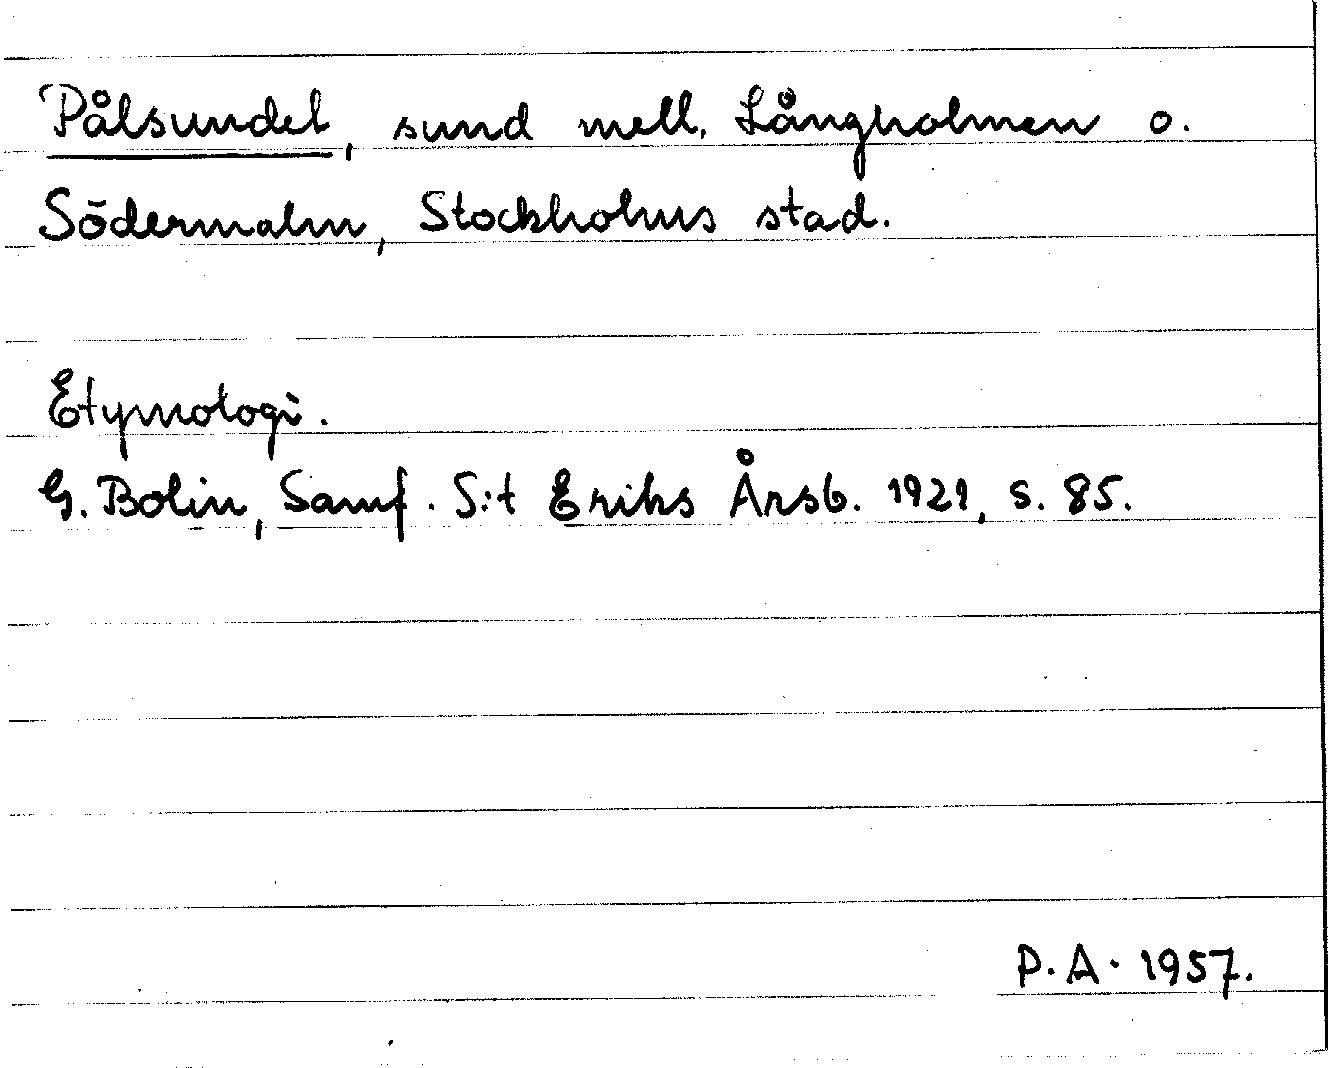 Pålsundet, sund mell. Långholmen o.
Södermalm, Stockholms stad.
Etymologi.
G. Bolin, Samf. S:t Eriks Årsb. 1921, s. 85.
P.A. 1957.